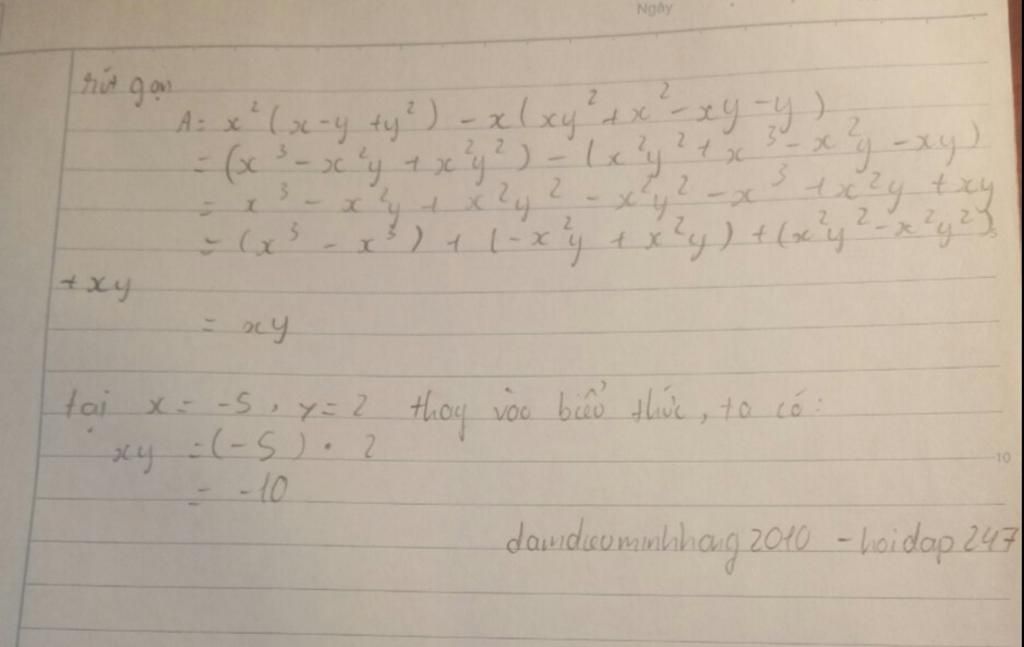 Ngày
rút gọn
A= x²(x-y+y²) - x(xy²+x²-xy-y)
= (x³ - x²y + x²y²) - (x²y² + x³ - x²y - xy)
= x³ - x²y + x²y² - x²y² - x³ + x²y + xy
= (x³ - x³) + (-x²y + x²y) + (x²y² - x²y²)
5
+xy
= xy
tại x = -5, y = 2 thay vào biểu thức, ta có:
xy = (-5) · 2
10
= -10
- hoidap247